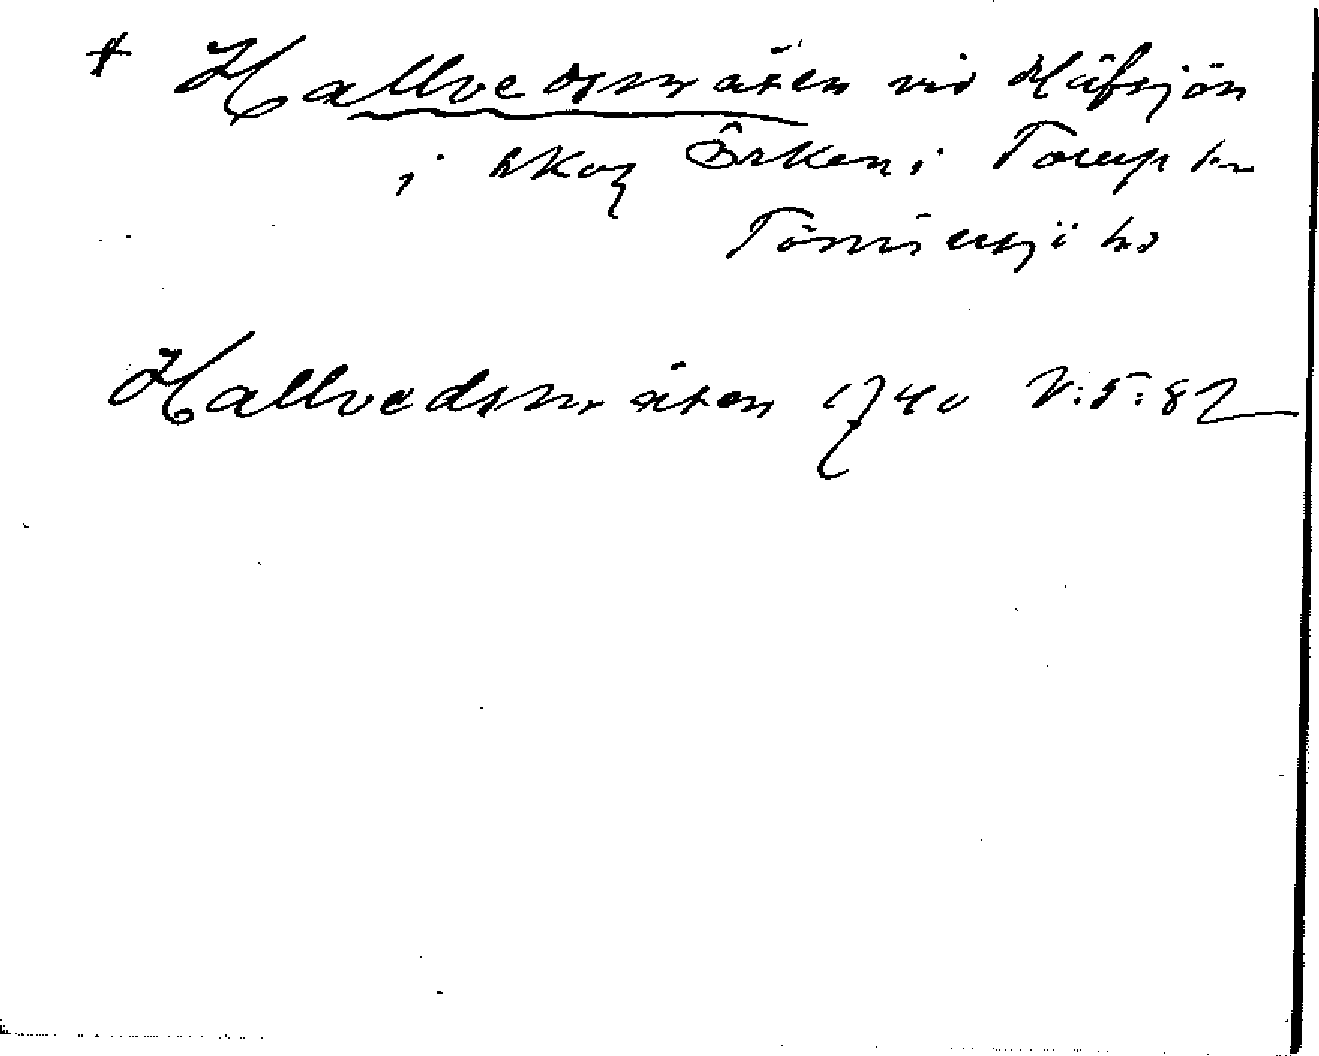 + Hallvedsmåsen vid Käfsjön
i skog Örken i Torup sn
Tönnersjö hd
Hallvedsmåsen 1740 N:5:82